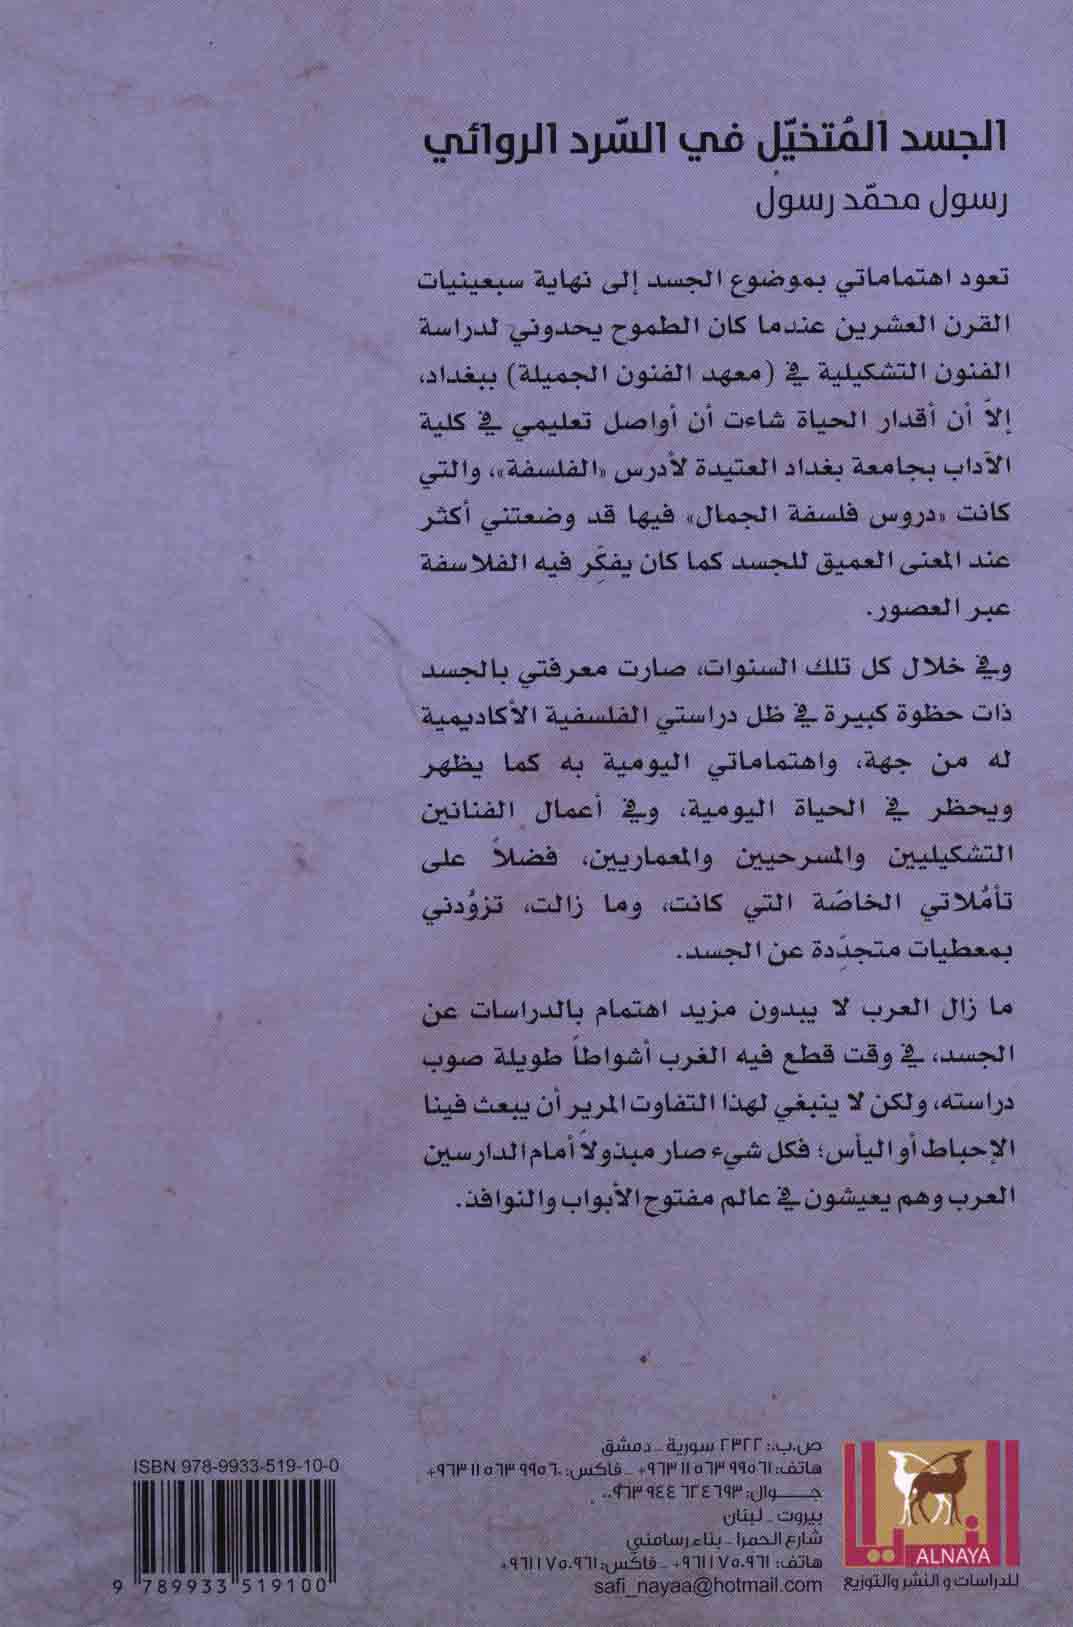 الجسد المُتخيّل في السّرد الروائي
رسول محمّد رسول
تعود اهتماماتي بموضوع الجسد إلى نهاية سبعينيات
القرن العشرين عندما كان الطموح يحدوني لدراسة
الفنون التشكيلية في (معهد الفنون الجميلة) ببغداد،
إلاّ أن أقدار الحياة شاءت أن أواصل تعليمي في كلية
الآداب بجامعة بغداد العتيدة لأدرس «الفلسفة»، والتي
كانت «دروس فلسفة الجمال» فيها قد وضعتني أكثر
عند المعنى العميق للجسد كما كان يفكِّر فيه الفلاسفة
عبر العصور.
وفي خلال كل تلك السنوات، صارت معرفتي بالجسد
ذات حظوة كبيرة في ظل دراستي الفلسفية الأكاديمية
له من جهة، واهتماماتي اليومية به كما يظهر
ويحظر في الحياة اليومية، وفي أعمال الفنانين
التشكيليين والمسرحيين والمعماريين، فضلاً على
تأمُلاتي الخاصّة التي كانت، وما زالت، تزوُدني
بمعطيات متجدِّدة عن الجسد.
ما زال العرب لا يبدون مزيد اهتمام بالدراسات عن
الجسد، في وقت قطع فيه الغرب أشواطاً طويلة صوب
دراسته، ولكن لا ينبغي لهذا التفاوت المرير أن يبعث فينا
الإحباط أو اليأس؛ فكل شيء صار مبذولاً أمام الدارسين
العرب وهم يعيشون في عالم مفتوح الأبواب والنوافذ.
ISBN 978-9933-519-10-0
9 789933 519100
ص.ب.: ٢٣٢٢ سورية ـ دمشق
هاتف: ٩٦٣١١٥٦٣٩٩٥٦١+ ـ فاكس: ٩٦٣١١٥٦٣٩٩٥٦٠+
جـــوال: ٠٠٩٦٣٩٤٤٦٢٤٦٩٣
بيروت ـ لبنان
شارع الحمرا ـ بناء رسامني
هاتف: ٩٦١١٧٥٠٩٦١+ ـ فاكس: ٩٦١١٧٥٠٩٦١+
safi_nayaa@hotmail.com
النايا
ALNAYA
للدراسات و النشر والتوزيع